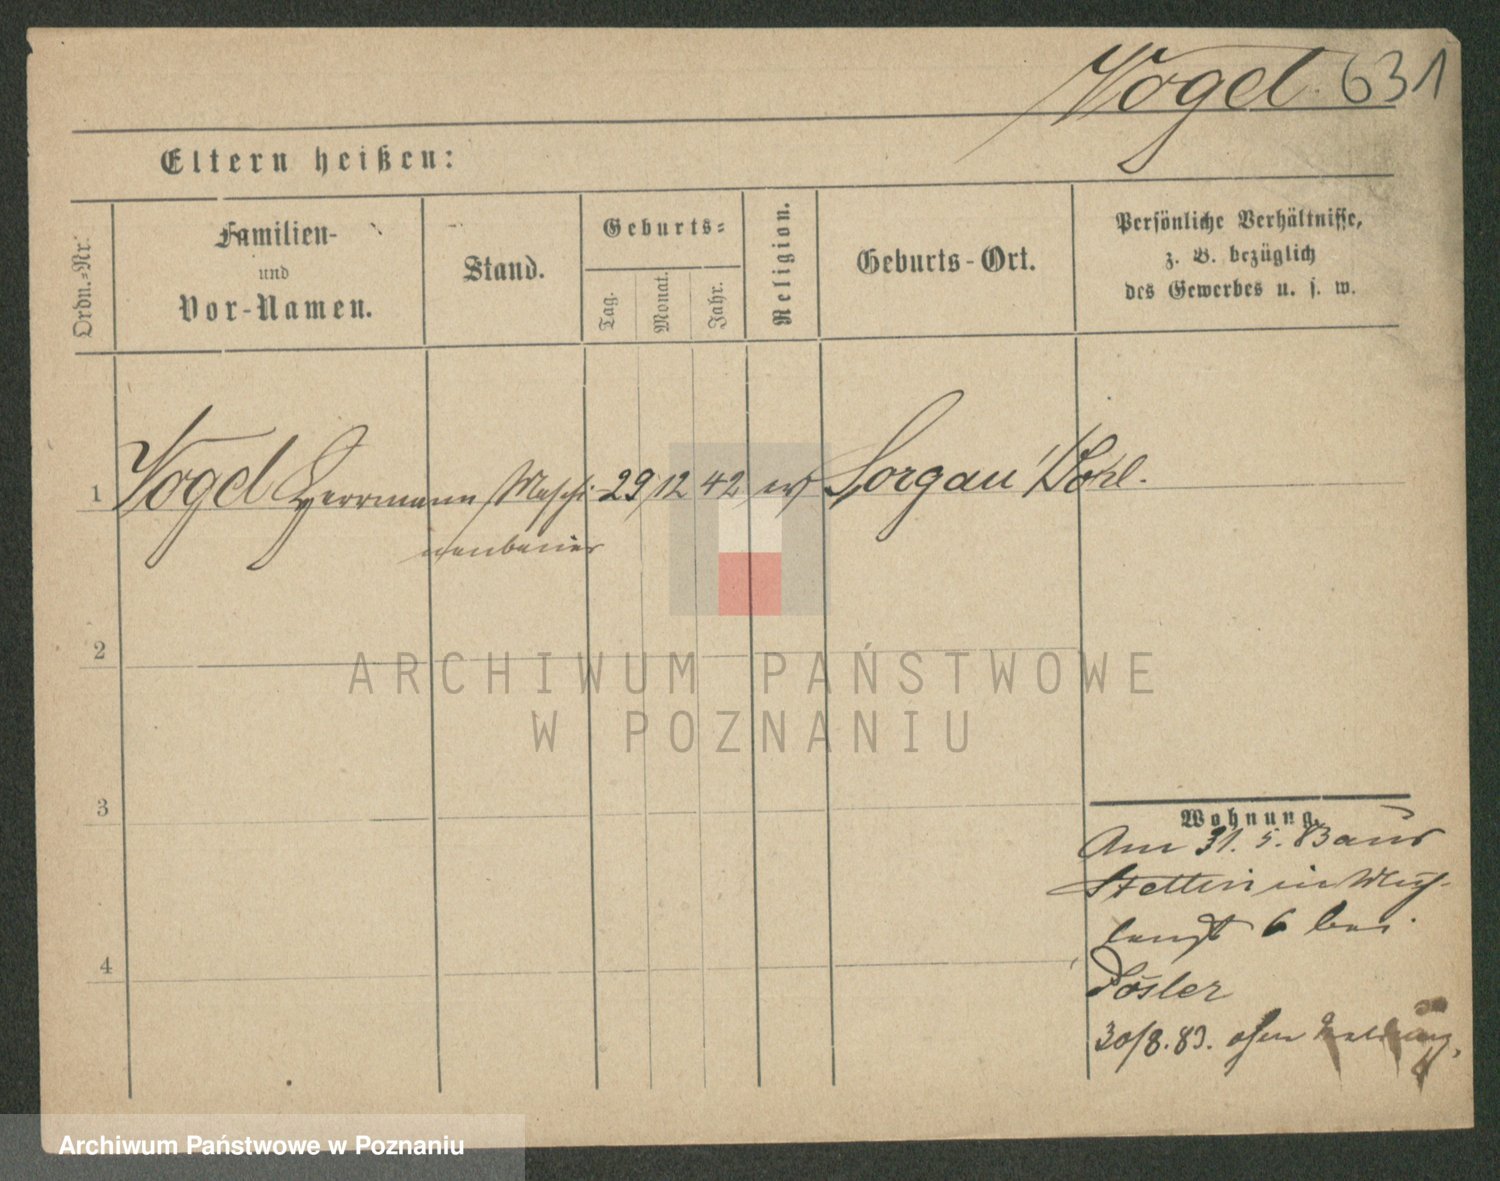 Vogel 631
Eltern heißen:
Ordn.-Nr.
Familien-
und
Vor-Namen.
Stand.
Geburts-
Tag.
Monat.
Jahr.
Religion.
Geburts-Ort.
Persönliche Verhältnisse,
z. B. bezüglich
des Gewerbes u. s. w.
1 Vogel Herrmann Maschi 29 12 42 ev Sorgau
nenbauer
2
ARCHIWUM PAŃSTWOWE
W POZNANIU
3
Wohnung.
Am 31. 5. 83 aus
Stettin in
6 bei
4
30/8. 83. ohne Meldung.
Archiwum Państwowe w Poznaniu